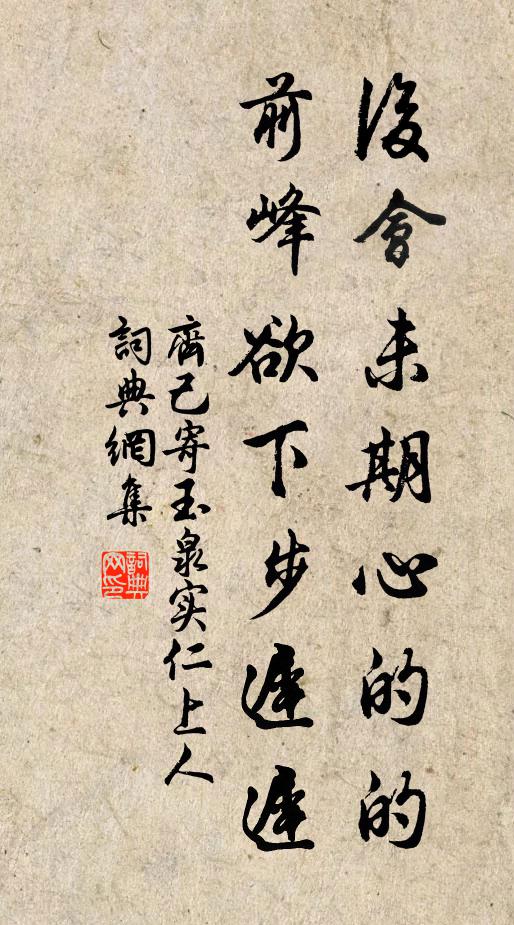 後會未期心的的
前峰欲下步遲遲
齊己寄玉泉实仁上人
詞典網集
詞典网印